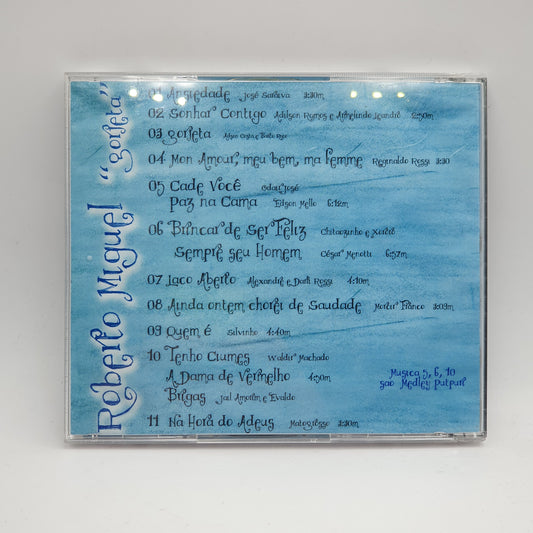 Roberto Miguel "Gorjeta"
01 Ansiedade José Saraiva 3:30m
02 Sonhar Contigo Adilson Ramos e Armelindo Leandro 2:50m
03 Gorjeta
04 Mon Amour, meu bem, ma femme Reginaldo Rossi 3:30
05 Cade Você Odair José
Paz na Cama Edson Mello 6:12m
06 Brincar de Ser Feliz Chitaozinho e Xororó
Sempre seu Homem César Menotti 6:57m
07 Laco Aberto Alexandre e Darli Rossi 4:10m
08 Ainda ontem chorei de Saudade Moacir Franco 3:03m
09 Quem é Silvinho 4:40m
10 Tenho Ciumes Waldir Machado
A Dama de Vermelho 4:50m
Brigas Jail Amorim e Evaldo
11 Na Hora do Adeus Matogrosso 3:30m
Musica 5, 6, 10
são Medley Putpuri